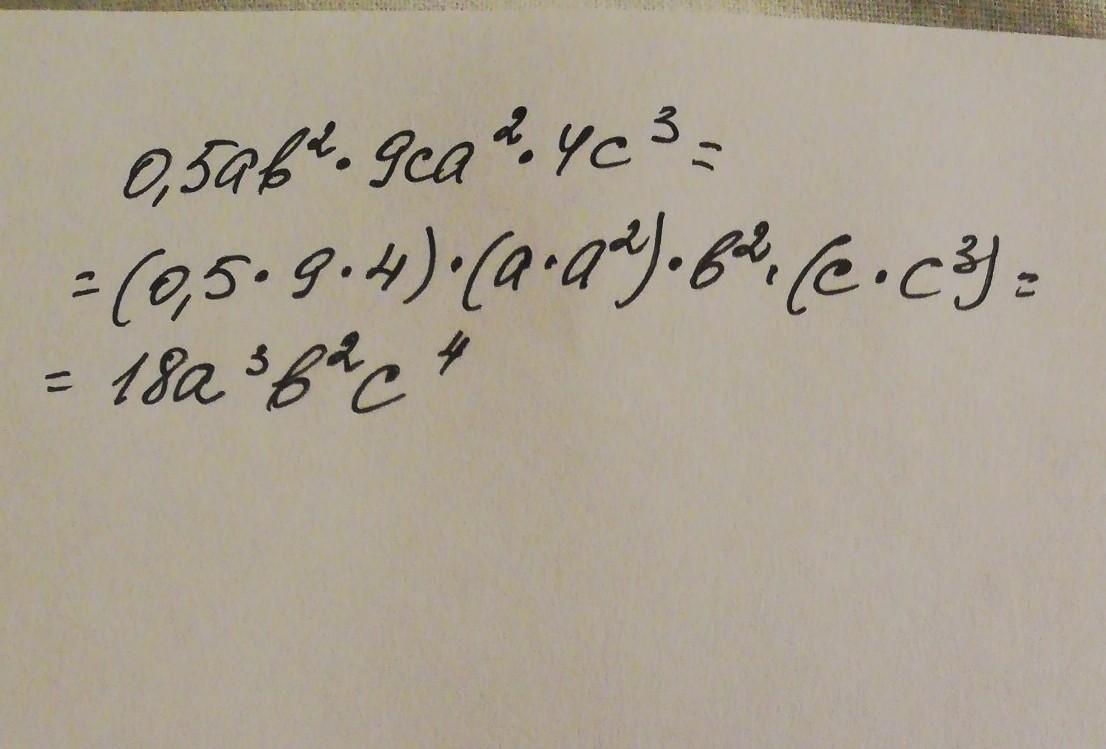 0,5ab²·9ca²·4c³=
=(0,5·9·4)·(a·a²)·b²·(c·c³)=
=18a³b²c⁴